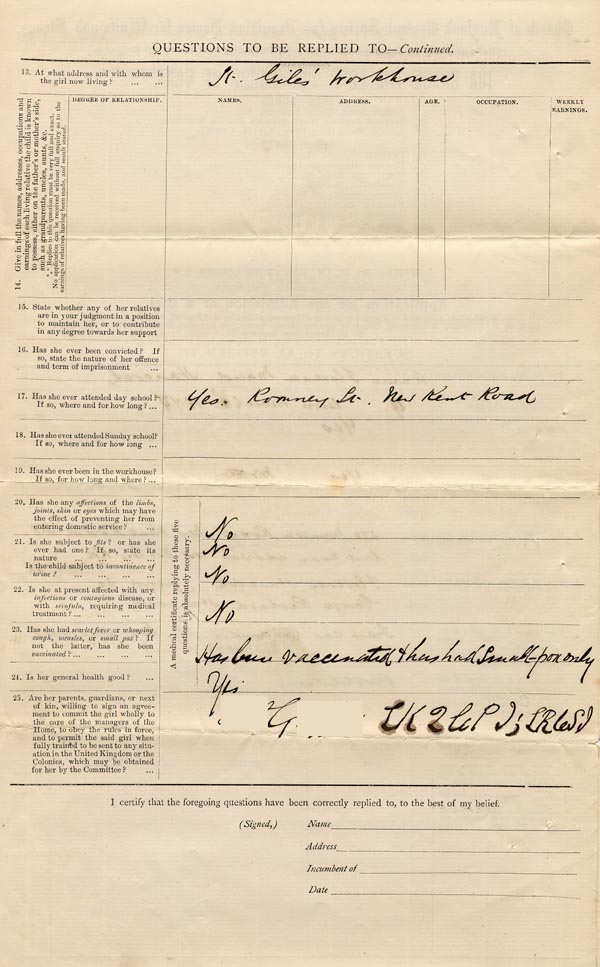 QUESTIONS TO BE REPLIED TO—Continued.
13. At what address and with whom is
the girl now living? ... ...
St. Giles' Workhouse
14. Give in full the names, addresses, occupations and
earnings of each living relative the child is known
to possess, either on the father's or mother's side,
such as grandparents, uncles, aunts, &c.
*** Replies to this question must be very full and exact.
No application can be received without full enquiry as to the
earnings of relatives having been made, and result stated.
DEGREE OF RELATIONSHIP.
NAMES.
ADDRESS.
AGE.
OCCUPATION.
WEEKLY
EARNINGS.
15. State whether any of her relatives
are in your judgment in a position
to maintain her, or to contribute
in any degree towards her support
16. Has she ever been convicted? If
so, state the nature of her offence
and term of imprisonment ...
17. Has she ever attended day school?
If so, where and for how long? ...
Yes. Romney St. New Kent Road
18. Has she ever attended Sunday school?
If so, where and for how long ...
19. Has she ever been in the workhouse?
If so, for how long and where? ...
A medical certificate replying to these five
questions is absolutely necessary.
20. Has she any affections of the limbs,
joints, skin or eyes which may have
the effect of preventing her from
entering domestic service? ...
No
21. Is she subject to fits? or has she
ever had one? If so, state its
nature ... ... ... ...
No
Is the child subject to incontinence of
urine? ... ... ... ...
No
22. Is she at present affected with any
infectious or contagious disease, or
with scrofula, requiring medical
treatment? ... ... ... ...
No
23. Has she had scarlet fever or whooping
cough, measles, or small pox? If
not the latter, has she been
vaccinated? ... ... ... ...
Has been vaccinated & has had Small-pox only
24. Is her general health good? ...
Yes
25. Are her parents, guardians, or next
of kin, willing to sign an agree-
ment to commit the girl wholly to
the care of the managers of the
Home, to obey the rules in force,
and to permit the said girl when
fully trained to be sent to any situ-
ation in the United Kingdom or the
Colonies, which may be obtained
for her by the Committee? ...
I certify that the foregoing questions have been correctly replied to, to the best of my belief.
(Signed,) Name
Address
Incumbent of
Date